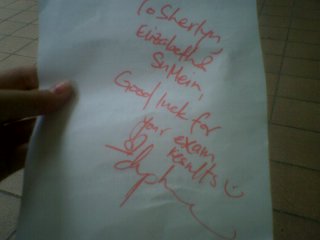 To Sherlyn,
Elizabeth &
SuMein,
Good luck for
your exam
results :)